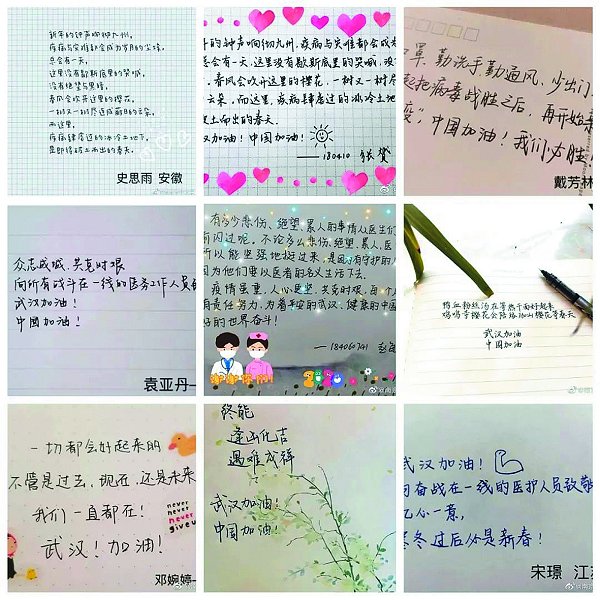 新年的钟声响彻九州,
疾病与灾难都会成为岁月的尘埃,
总会有一天,
这里没有歇斯底里的哭喊,
没有绝望与黑暗,
春风会吹开这里的樱花,
一树又一树尽是成荫的云朵,
而这里,
疾病肆虐过的冰冷土地下,
是即将破土而出的春天。
史思雨 安徽
的钟声响彻九州,疾病与灾难都会成
总会有一天,这里没有歇斯底里的哭喊,
春风会吹开这里的樱花,一树又一树
云朵,而这里,疾病肆虐过的冰冷土
破土而出的春天。
汉加油!中国加油!
——180410
罩、勤洗手、勤通风、少出门
起把病毒战胜之后,再开始
疫”,中国加油!我们必胜
戴芳林
众志成城,共克时艰
向所有战斗在一线的医务工作人员
武汉加油!
中国加油!
袁亚丹
有多少悲伤、绝望、累人的事情从医生们
前闪过呢,不论多么悲伤、绝望、累人,医
所以能坚强地挺过来,是因为有守护的人
因为他们要以医者的名义生活下去。
疫情虽重,人心更坚,共克时艰,每个人
有责任努力,为着平安的武汉,健康的中国
好的世界奋斗!
——18406041
2020
鸭血粉丝汤在等热干面好起来
鸡鸣寺樱花会陪珞珈山樱花等春天
武汉加油
中国加油
一切都会好起来的
不管是过去、现在、还是未来
我们一直都在!
武汉!加油!
never
never
never
give up
邓婉婷
终能
逢凶化吉
遇难成祥
武汉加油!
中国加油!
武汉加油!
向奋战在一线的医护人员致敬
亿心一意,
寒冬过后必是新春!
宋璟 江苏